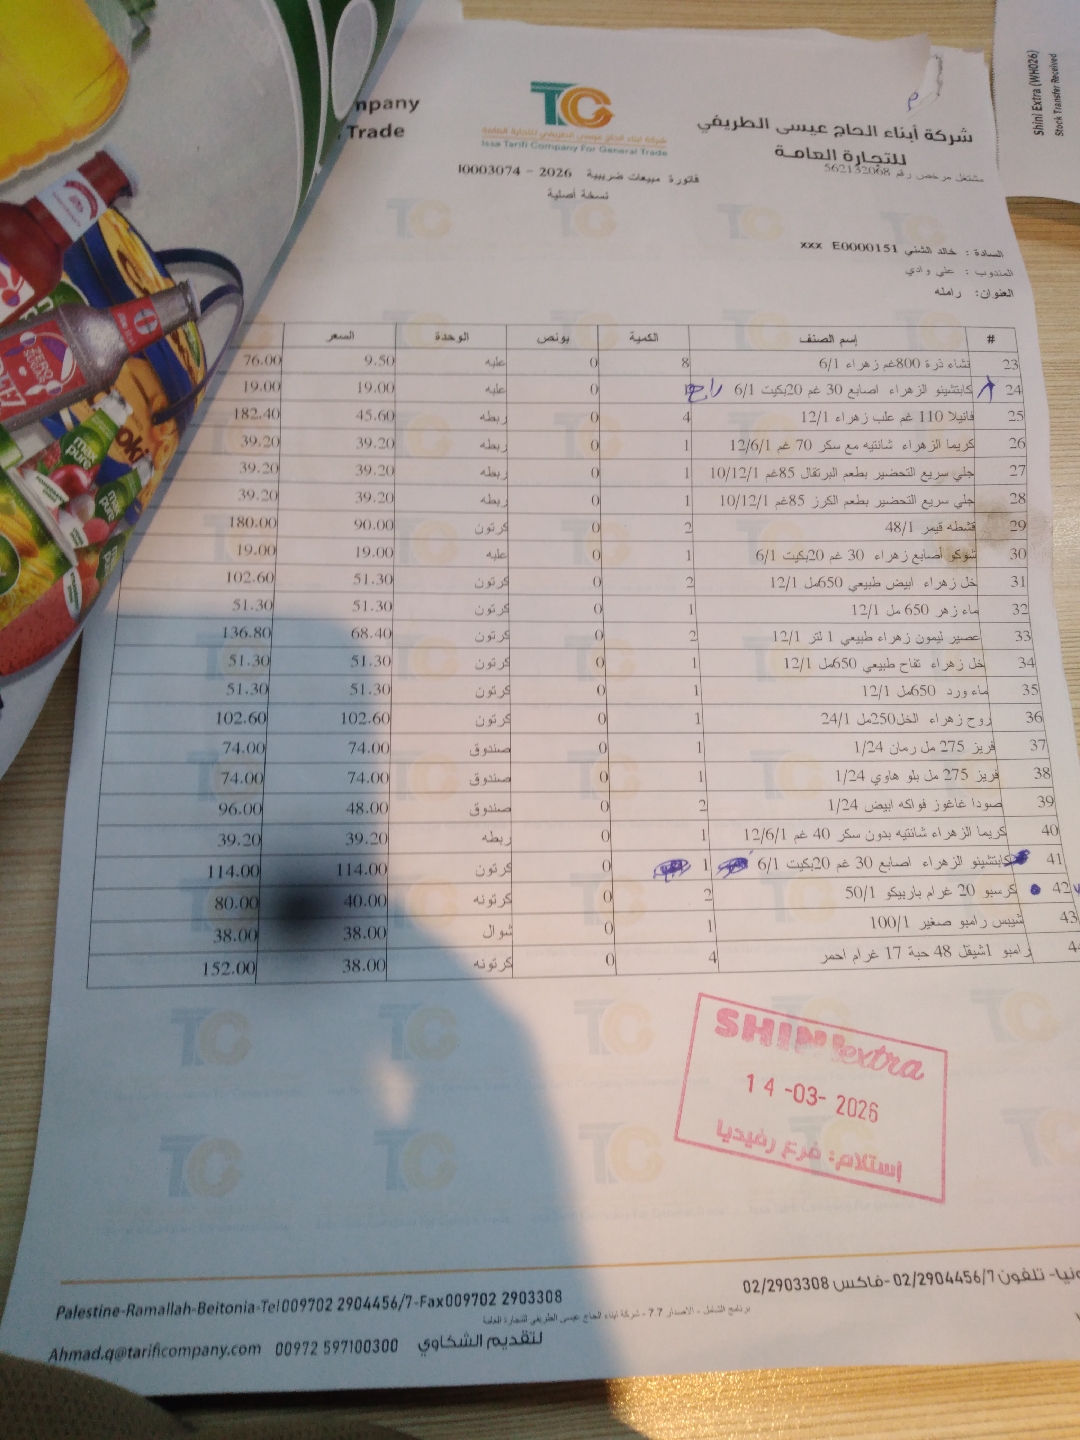 mpany
Trade
TC
شركة ابناء الحاج عيسى الطريفي للتجارة العامة
Issa Tarifi Company For General Trade
شركة أبناء الحاج عيسى الطريفي
للتجارة العامة
مشتغل مرخص رقم 562132068
فاتورة مبيعات ضريبية 2026 - I0003074
نسخة أصلية
السادة : خالد الشني xxx E0000151
المندوب : علي وادي
العنوان: رامله
# إسم الصنف الكمية بونص الوحدة السعر
23 نشاء ذرة 800غم زهراء 6/1 8 0 علبه 9.50 76.00
24 كابتشينو الزهراء اصابع 30 غم 20بكيت 6/1 راجع 0 علبه 19.00 19.00
25 فانيلا 110 غم علب زهراء 12/1 4 0 ربطه 45.60 182.40
26 كريما الزهراء شانتيه مع سكر 70 غم 12/6/1 1 0 ربطه 39.20 39.20
27 جلي سريع التحضير بطعم البرتقال 85غم 10/12/1 1 0 ربطه 39.20 39.20
28 جلي سريع التحضير بطعم الكرز 85غم 10/12/1 1 0 ربطه 39.20 39.20
29 قشطه قيمر 48/1 2 0 كرتون 90.00 180.00
30 شوكو أصابع زهراء 30 غم 20بكيت 6/1 1 0 علبه 19.00 19.00
31 خل زهراء ابيض طبيعي 650مل 12/1 2 0 كرتون 51.30 102.60
32 ماء زهر 650 مل 12/1 1 0 كرتون 51.30 51.30
33 عصير ليمون زهراء طبيعي 1 لتر 12/1 2 0 كرتون 68.40 136.80
34 خل زهراء تفاح طبيعي 650مل 12/1 1 0 كرتون 51.30 51.30
35 ماء ورد 650مل 12/1 1 0 كرتون 51.30 51.30
36 روح زهراء الخل250مل 24/1 1 0 كرتون 102.60 102.60
37 فريز 275 مل رمان 1/24 1 0 صندوق 74.00 74.00
38 فريز 275 مل بلو هاوي 1/24 1 0 صندوق 74.00 74.00
39 صودا غاغوز فواكه ابيض 1/24 2 0 صندوق 48.00 96.00
40 كريما الزهراء شانتيه بدون سكر 40 غم 12/6/1 1 0 ربطه 39.20 39.20
41 كابتشينو الزهراء اصابع 30 غم 20بكيت 6/1 1 0 كرتونه 114.00 114.00
42 كرسبو 20 غرام باربيكو 50/1 2 0 كرتونه 40.00 80.00
43 شيبس رامبو صغير 100/1 1 0 شوال 38.00 38.00
44 رامبو 1شيقل 48 حبة 17 غرام احمر 4 0 كرتونه 38.00 152.00
SHINI extra
14 -03- 2026
إستلام: فرع رفيديا
ونيا- تلفون 02/2904456/7 -فاكس 02/2903308
Palestine-Ramallah-Beitonia-Tel009702 2904456/7-Fax009702 2903308
برنامج الشامل - الاصدار 7.7 - شركة ابناء الحاج عيسى الطريفي للتجارة العامة
Ahmad.q@tarificompany.com 00972 597100300 لتقديم الشكاوي
Shini Extra (WH026)
Stock Transfer Received
max
pure